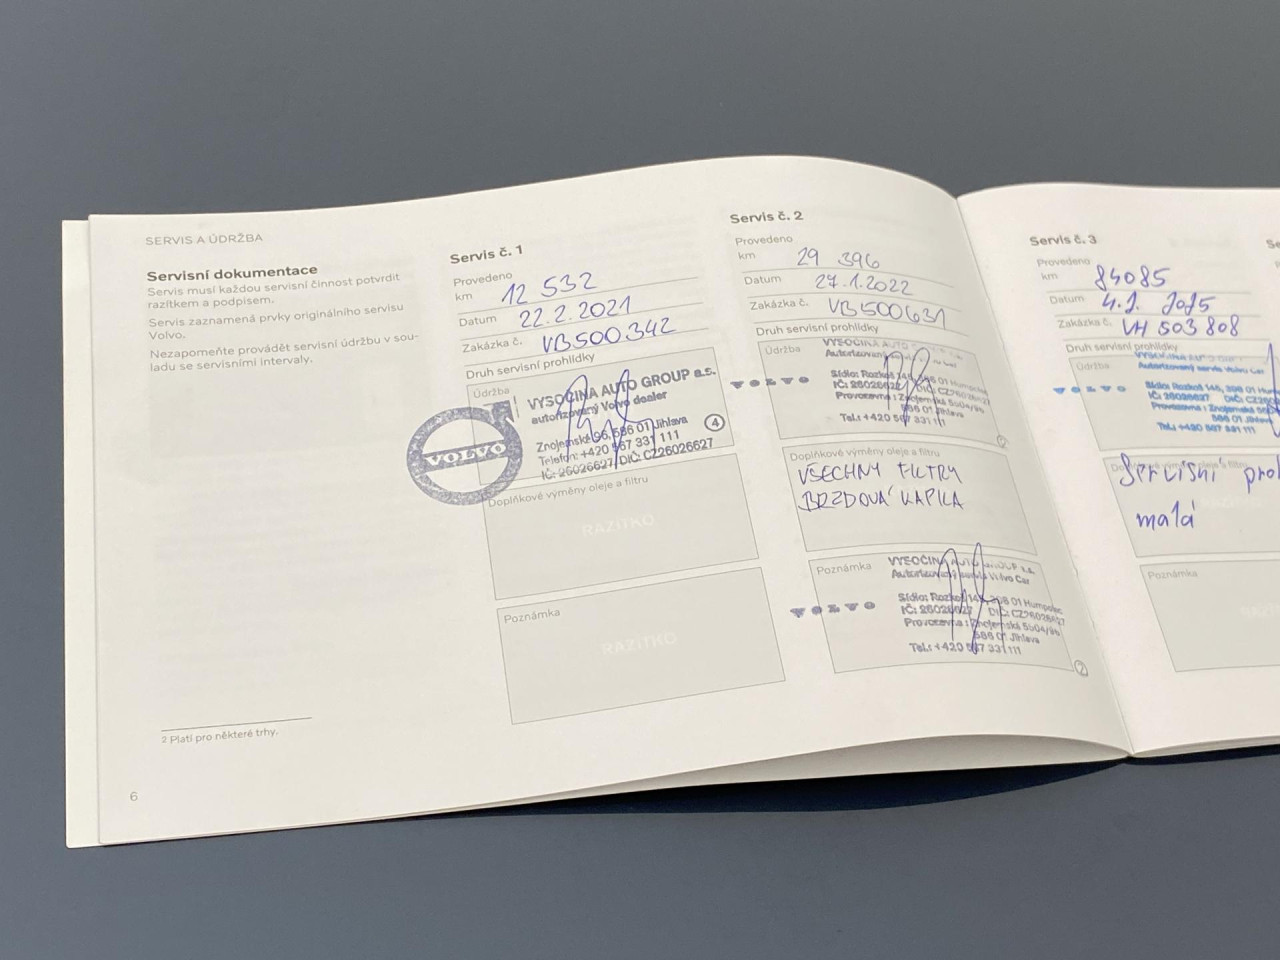 SERVIS A ÚDRŽBA
Servisní dokumentace
Servis musí každou servisní činnost potvrdit
razítkem a podpisem.
Servis zaznamená prvky originálního servisu
Volvo.
Nezapomeňte provádět servisní údržbu v sou-
ladu se servisními intervaly.
2 Platí pro některé trhy.
6
Servis č. 1
Provedeno
km 12 532
Datum 22.2.2021
Zakázka č. VB500342
Druh servisní prohlídky
Údržba
VYSOČINA AUTO GROUP a.s.
autorizovaný Volvo dealer
Znojemská 96, 586 01 Jihlava
Telefon: +420 567 331 111
IČ: 26026627/DIČ: CZ26026627
4
VOLVO
Doplňkové výměny oleje a filtru
RAZÍTKO
Poznámka
RAZÍTKO
Servis č. 2
Provedeno
km 29 396
Datum 27.1.2022
Zakázka č. VB500631
Druh servisní prohlídky
Údržba
VYSOČINA AUTO
Autorizovaný Car
VOLVO
Sídlo: Rozkoš 145, 396 01 Humpolec
IČ: 26026627 DIČ: CZ26026627
Provozovna: Znojemská 5604/96
586 01 Jihlava
Tel.: +420 567 331 111
2
Doplňkové výměny oleje a filtru
VŠECHNY FILTRY
BRZDOVÁ KAPKA
Poznámka
VYSOČINA AUTO GROUP a.s.
Autorizovaný servis Volvo Car
VOLVO
Sídlo: Rozkoš 145, 396 01 Humpolec
IČ: 26026627 DIČ: CZ26026627
Provozovna: Znojemská 5604/96
586 01 Jihlava
Tel.: +420 567 331 111
2
Servis č. 3
Provedeno
km 84085
Datum 4.2. 2025
Zakázka č. VH 503 808
Druh servisní prohlídky
Údržba
VYSOČINA AUTO
Autorizovaný servis Volvo Car
VOLVO
Sídlo: Rozkoš 145, 396 01 Hum
IČ: 26026627 DIČ: CZ
Provozovna: Znojemská
586 01 Jihlava
Tel.: +420 567 331 111
Servisní
malá
Poznámka